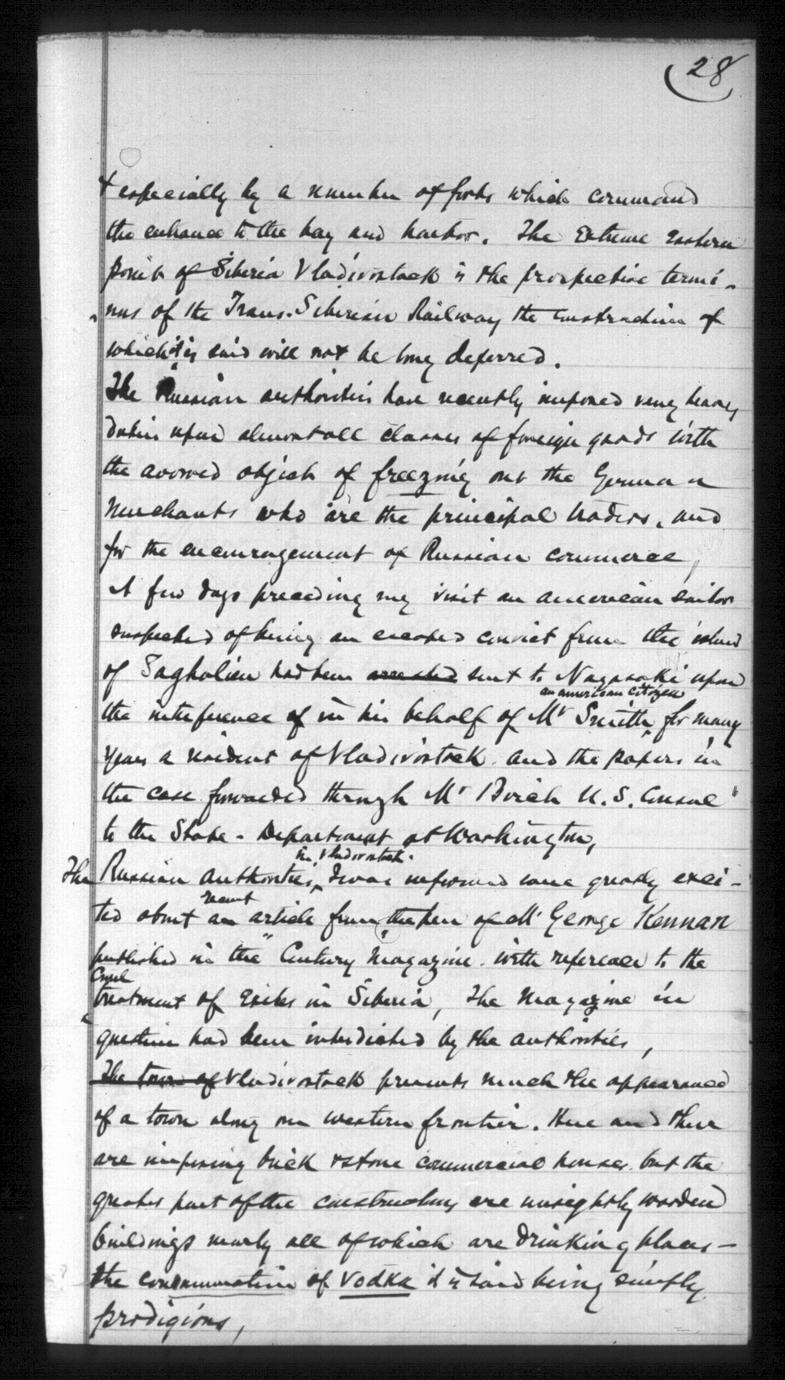 28
& especially by a number of forts which command
the entrance to the bay and harbor. The Extreme Eastern
point of Siberia Vladivostock is the prospective termi-
nus of the Trans-Siberian Railway the construction of
which it is said will not be long deferred.
The Russian authorities have recently imposed very heavy
duties upon almost all classes of foreign goods with
the avowed object of freezing out the German
Merchants who are the principal traders, and
for the encouragement of Russian commerce,
A few days preceding my visit an American sailor
suspected of being an escaped convict from the island
of Saghalien had been arrested sent to Nagasaki upon
an American citizen
the interference of in his behalf of Mr Smith, for many
years a resident of Vladivostock and the papers in
the case forwarded through Mr Birch U.S. Consul
to the State-Department at Washington,
in Vladivostock
The Russian authorities, I was informed were greatly exci-
recent
ted about an article from the pen of Mr George Kennan
published in the "Century Magazine with reference to the
Cruel
treatment of Exiles in Siberia, The Magazine in
question had been interdicted by the authorities,
The town of Vladivostock presents much the appearance
of a town along our western frontier. Here and there
are imposing brick & stone commercial houses, but the
greater part of the constructions are unsightly wooden
buildings nearly all of which are drinking places -
the consummation of Vodka it is said being simply
prodigious,